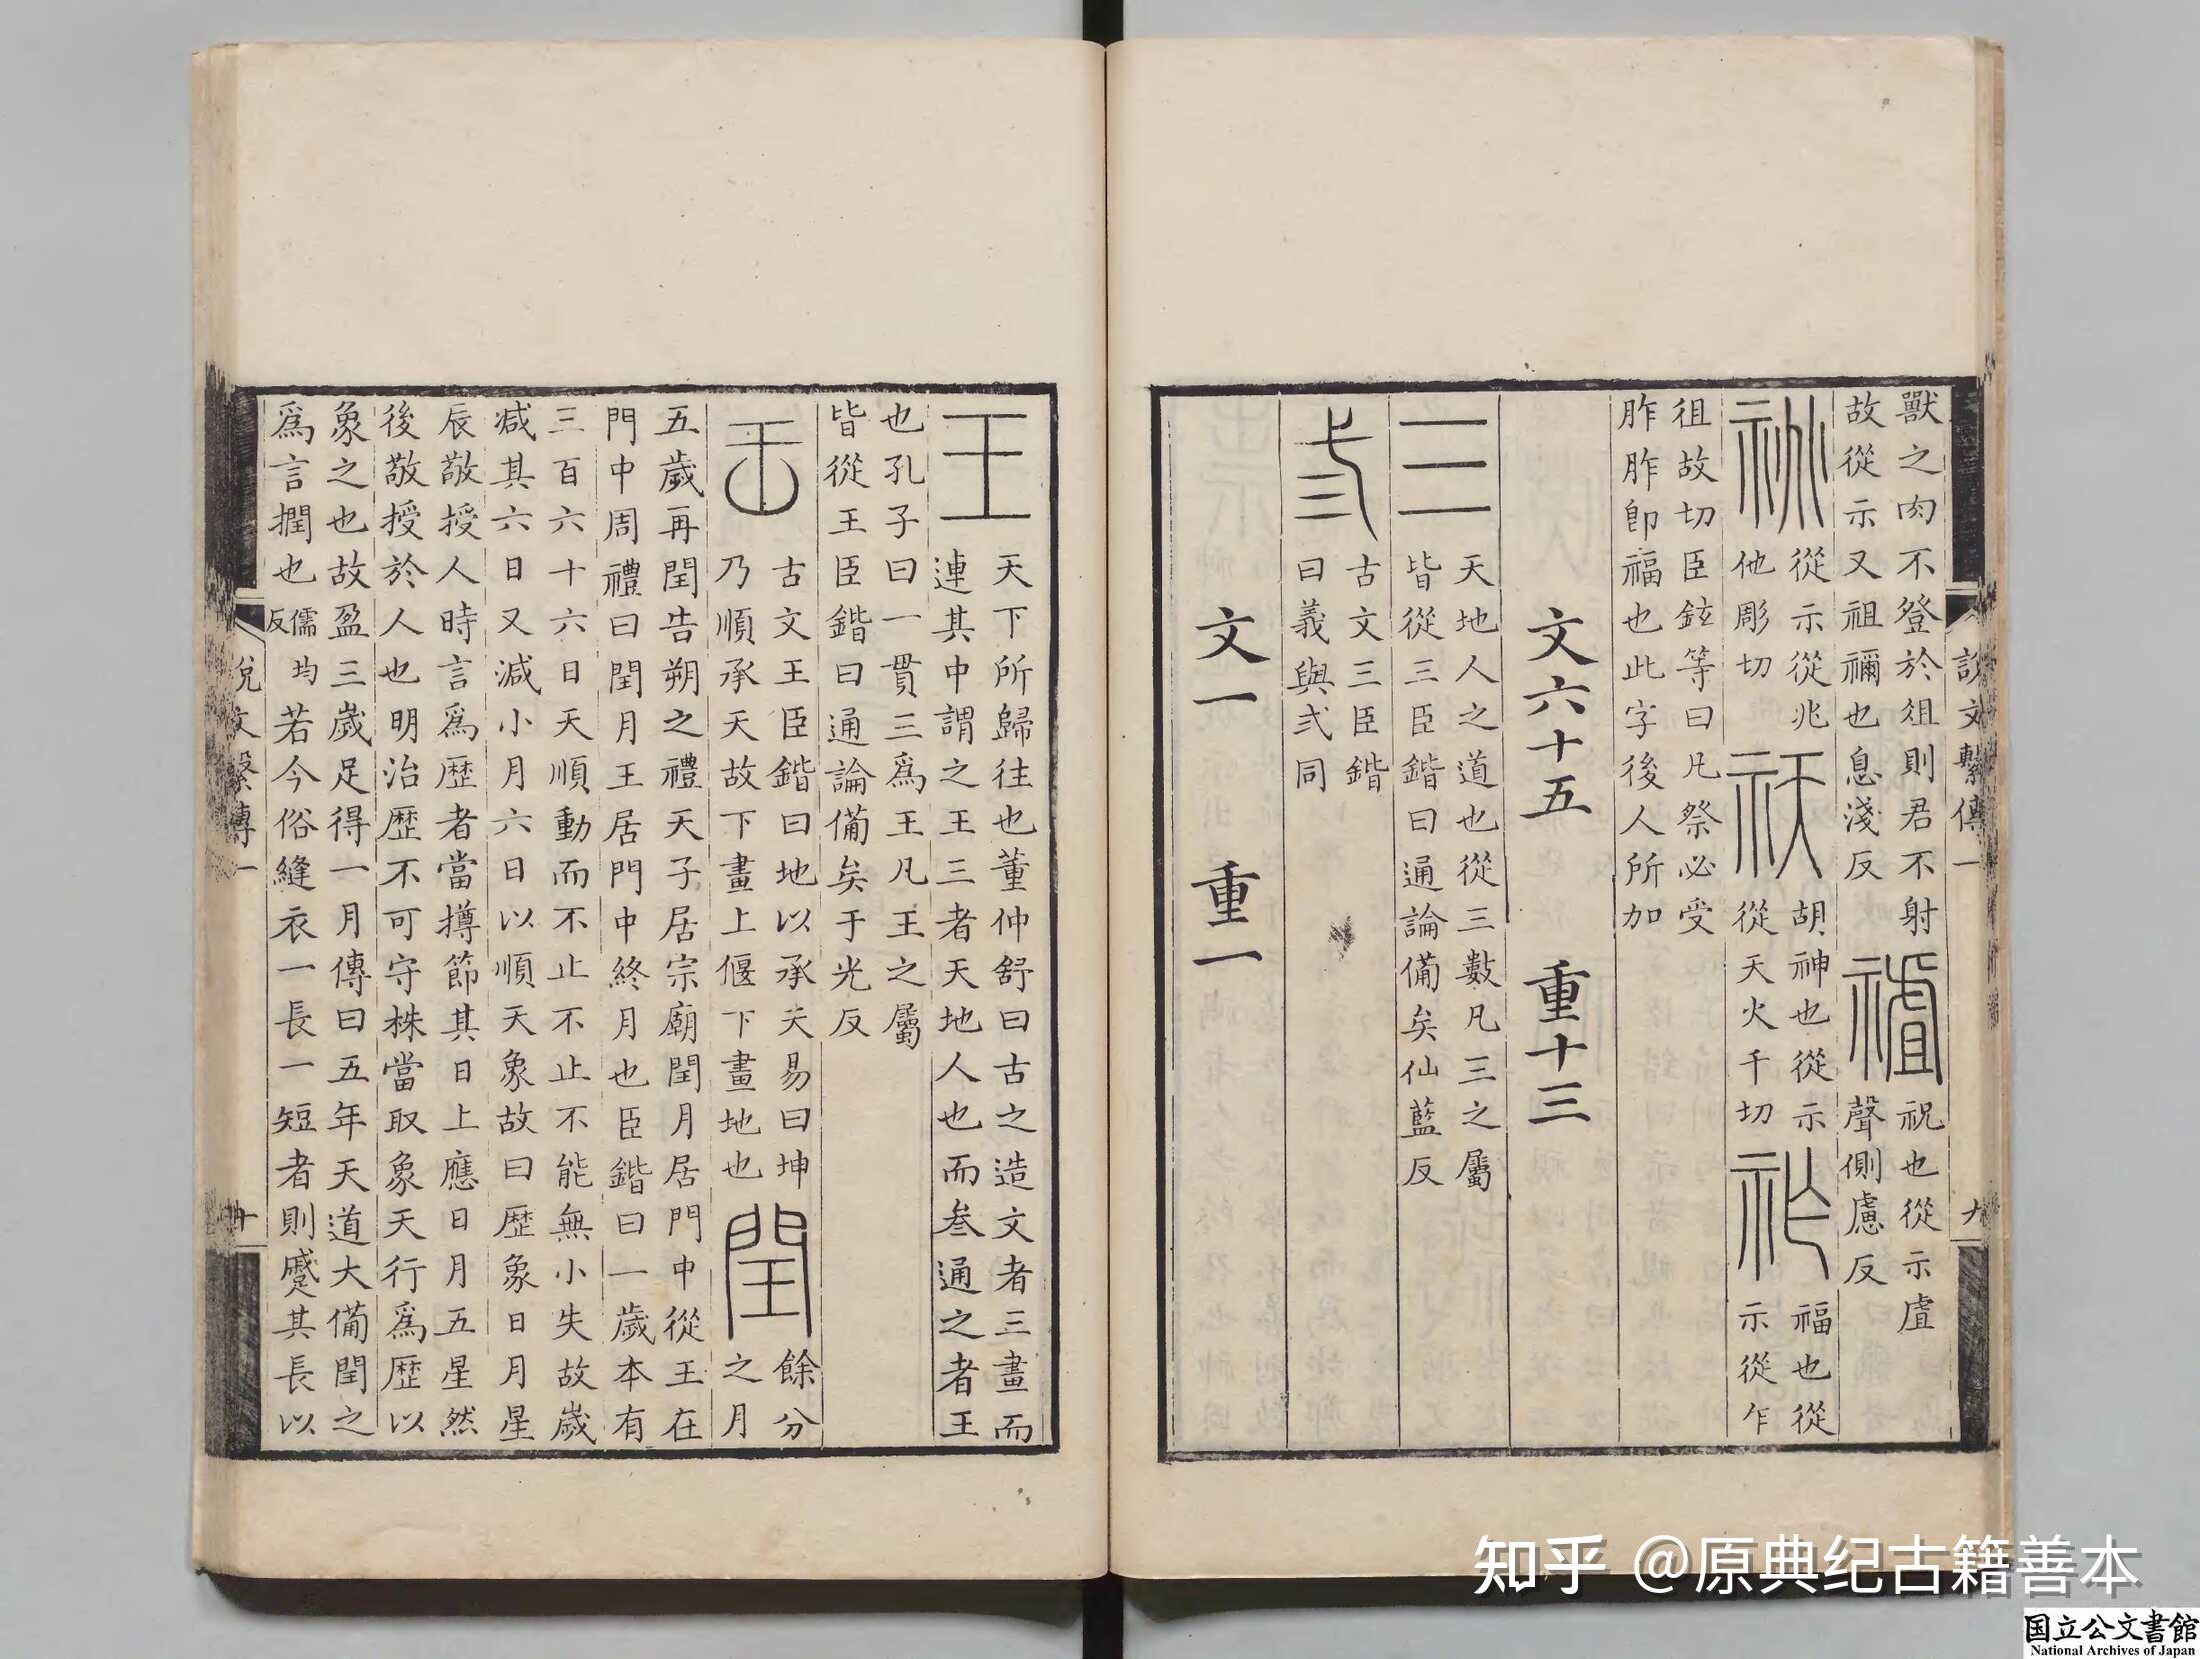 說文繫傳一 九
獸之肉不登於俎則君不射
故從示又祖禰也息淺反
𥛜
祝也從示虘
聲側慮反
祧
從示從兆
他彫切
祆
胡神也從示
從天火千切
祚
福也從
示從乍
徂故切臣鉉等曰凡祭必受
胙胙即福也此字後人所加
文六十五 重十三
三
天地人之道也從三數凡三之屬
皆從三臣鍇曰通論備矣仙藍反
弎
古文三臣鍇
曰義與弍同
文一 重一
王
天下所歸往也董仲舒曰古之造文者三畫而
連其中謂之王三者天地人也而叄通之者王
也孔子曰一貫三爲王凡王之屬
皆從王臣鍇曰通論備矣于光反
古文王臣鍇曰地以承天易曰坤
乃順承天故下畫上偃下畫地也
閏
餘分
之月
五歲再閏告朔之禮天子居宗廟閏月居門中從王在
門中周禮曰閏月王居門中終月也臣鍇曰一歲本有
三百六十六日天順動而不止不止不能無小失故歲
減其六日又減小月六日以順天象故曰歷象日月星
辰敬授人時言爲歷者當撙節其日上應日月五星然
後敬授於人也明治歷不可守株當取象天行爲歷以
象之也故盈三歲足得一月傳曰五年天道大備閏之
爲言撋也儒均反若今俗縫衣一長一短者則蹙其長以
說文繫傳一 十
知乎 @原典纪古籍善本
国立公文書館
National Archives of Japan